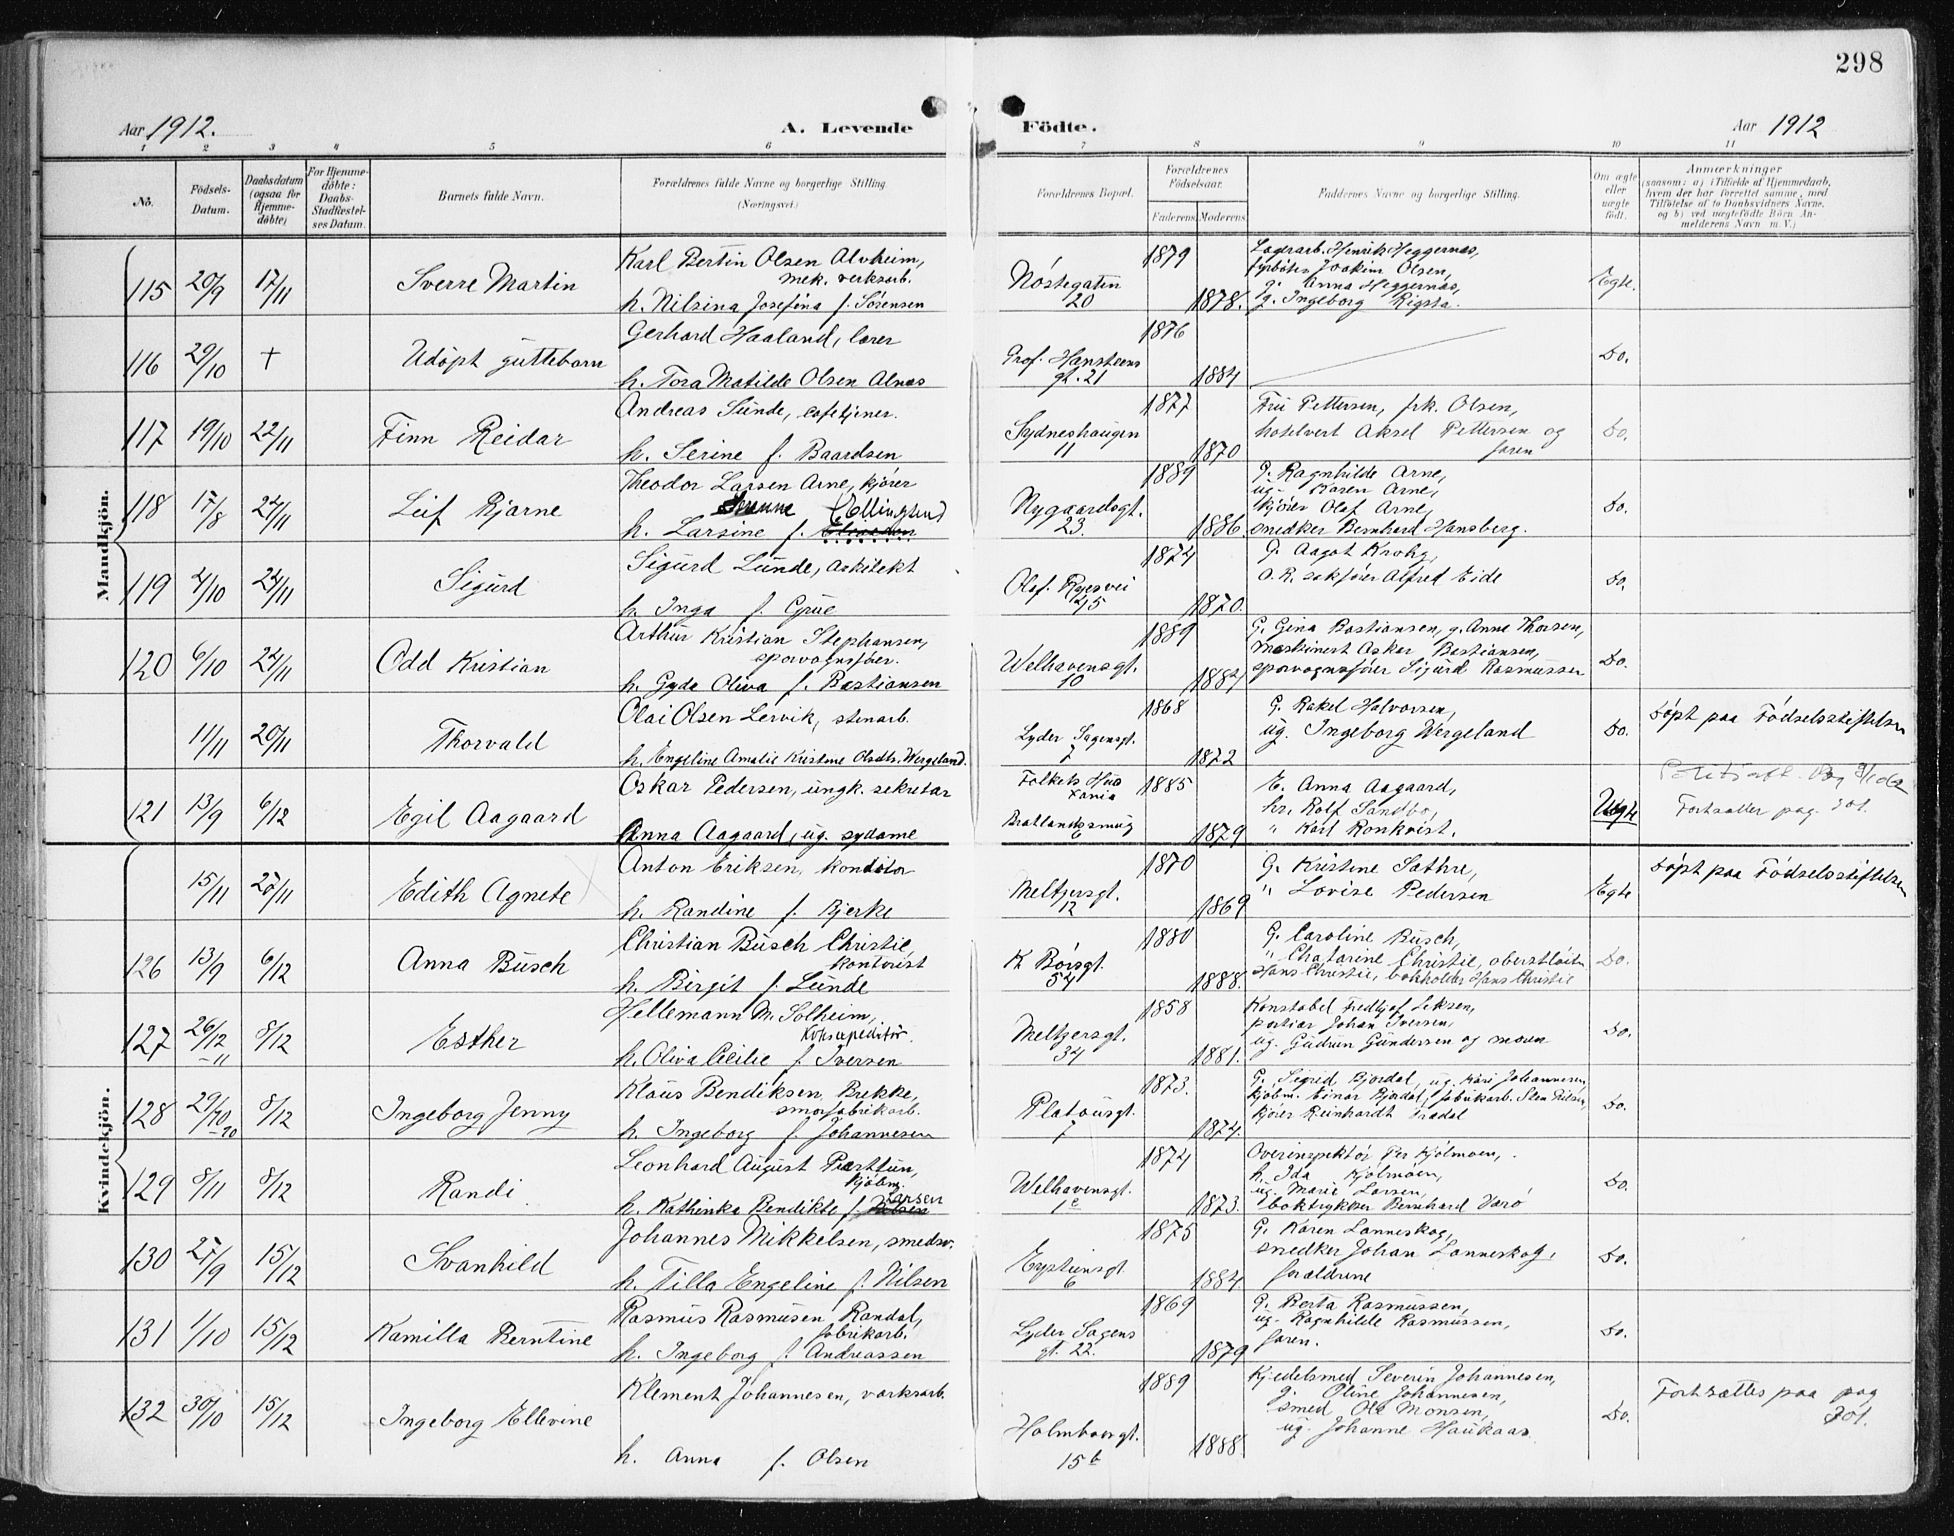 298
Aar 1912.
A. Levende Födte.
Aar 1912
1 2 3 4 5 6 7 8 9 10 11
No.
Födsels-Datum.
Daabsdatum (ogsaa for Hjemmedöbte)
For Hjemmedöbte: Daabs-Stadfæstelses Datum.
Barnets fulde Navn.
Forældrenes fulde Navne og borgerlige Stilling
(Næringsvei.)
Forældrenes Bopæl.
Forældrenes Födselsaar.
Faderens Moderens
Faddernes Navne og borgerlige Stilling.
Om ægte eller uægte födt.
Anmærkninger
(saasom: a) i Tilfælde af Hjemmedaab,
hvem der har forrettet samme, med
Tilföielse af to Daabsvidners Navne,
og b) ved uægtefödte Börn An-
melderens Navn m. V.)
Mandkjön.
115 20/9 17/11 Sverre Martin
Karl Bertin Olsen Alvheim,
mek. verksarb.
h. Nilsina Josefina f. Sørensen
Nøstegaten
20
1879
1878.
Lagerarb. Henrik Heggernæs,
fyrbøter Joakim Olsen,
g. Anna Heggernæs,
g. Ingeborg Rigsta.
Egte.
116 29/10 + Udøpt guttebarn
Gerhard Haaland, lærer
h. Tora Matilde Olsen Alnæs
Prof. Hansteens
gt. 21
1876
1884
Do.
117 19/10 22/11 Finn Reidar
Andreas Sunde, cafetjener.
h. Serine f. Baardsen
Sydneshaugen
11
1877
1870
Fru Pettersen, frk. Olsen,
hotelvert Aksel Pettersen og
faren
Do.
118 17/8 24/11 Leif Bjarne
Theodor Larsen Arne, kjører
h. Larsine f. Ellingsen
Nygaardsgt.
23.
1889
1886.
G. Ragnhilde Arne,
ug. Karen Arne,
kjører Olaf Arne,
snedker Bernhard Hansberg.
Do.
119 4/10 24/11 Sigurd
Sigurd Lunde, arkitekt
h. Inga f. Grue
Olaf Ryesvei
45
1874
1870.
G. Aagot Krohg,
O.R. sakfører Alfred Eide
Do.
120 6/10 24/11 Odd Kristian
Arthur Kristian Stephansen,
sporvognsfører.
h. Gyda Oliva f. Bastiansen
Welhavensgt.
10
1889
1887
G. Gina Bastiansen, g. Anne Thorsen,
Maskinert Asker Bastiansen,
sporvognsfører Sigurd Rasmussen
Do.
11/11 20/11 Thorvald
Olai Olsen Lervik, stenarb.
h. Engeline Amalie Kristene Olsdtr. Wergeland.
Lyder Sagensgt.
7
1868
1872
G. Rakel Halvorsen,
ug. Ingeborg Wergeland
Do.
Døpt paa Fødselsstiftelsen
121 13/9 6/12 Egil Aagaard
Oskar Pedersen, ungk. sekretær
Anna Aagaard, ug. sydame
Folkets Hus
Xania
Bratlandssmug
6
1885
1879
E. Anna Aagaard,
hr. Rolf Sandbo,
" Karl Ronkvist.
Uegte
Fortsætter pag. 301.
Kvindekjön.
15/11 27/11 Edith Agnete
Anton Eriksen, konditor
h. Randine f. Bjerke
Meltzersgt.
12
1870
1869
G. Kristine Sæthre,
" Lovise Pedersen
Egte
Døpt paa Fødselsstiftelsen
126 13/9 6/12 Anna Busch
Christian Busch Christie,
kontorist
h. Birgit f. Lunde
K Børsgt.
54
1880
1888.
G. Caroline Busch,
" Chatarine Christie, oberstløitn
Hans Christie, bokholder Hans Christie
Do.
127 26/12 -11 8/12 Esther
Hellemann M. Solheim,
h. Oliva Cecilie f. Iversen
Meltzersgt.
34
1858
1881.
Konstabel Fredhjof Eiksen,
portier Johan Iversen,
ug. Gudrun Gundersen og moren
Do.
128 29/10 8/12 Ingeborg Jenny
Klaus Bendiksen Brekke,
smørfabrikarb.
h. Ingeborg f. Johannesen
Platousgt.
7
1873.
1874.
G. Sigrid Bjordal, ug. Kari Johannesen,
kjøbm. Einar Bjordal, fabrikarb. Sten Nilsen,
kjører Reinhardt Tradal
Do.
129 8/11 8/12 Randi
Leonhard August Parttun,
kjøbm.
h. Kathinka Bendikte f. Larsen
Welhavensgt.
1c
1874
1873.
Overinspektør Per Kjølmoen,
h. Ida Kjølmoen,
ug. Marie Larsen,
boktrykker Bernhard Varø
Do.
130 27/9 15/12 Svanhild
Johannes Mikkelsen, smedsv.
h. Tilla Engeline f. Nilsen
Eystiensgt
6
1875
1884
G. Karen Lanneskog,
snedker Johan Lanneskog,
forældrene
Do.
131 1/10 15/12 Kamilla Berntine
Rasmus Rasmusen Randal,
fabrikarb.
h. Ingeborg f. Andreassen
Lyder Sagens
gt. 22.
1869
1879
G. Berta Rasmussen,
ug. Ragnhilde Rasmussen,
faren.
Do.
132 30/10 15/12 Ingeborg Ellevine
Klement Johannesen, verksarb.
h. Anna f. Olsen
Holmboesgt.
15b
1889
1888.
Kjedelsmed Severin Johannesen,
g. Oline Johannesen,
smed Ole Monsen,
ug. Johanne Haukaas
Do.
Fortsættes paa pag
301.